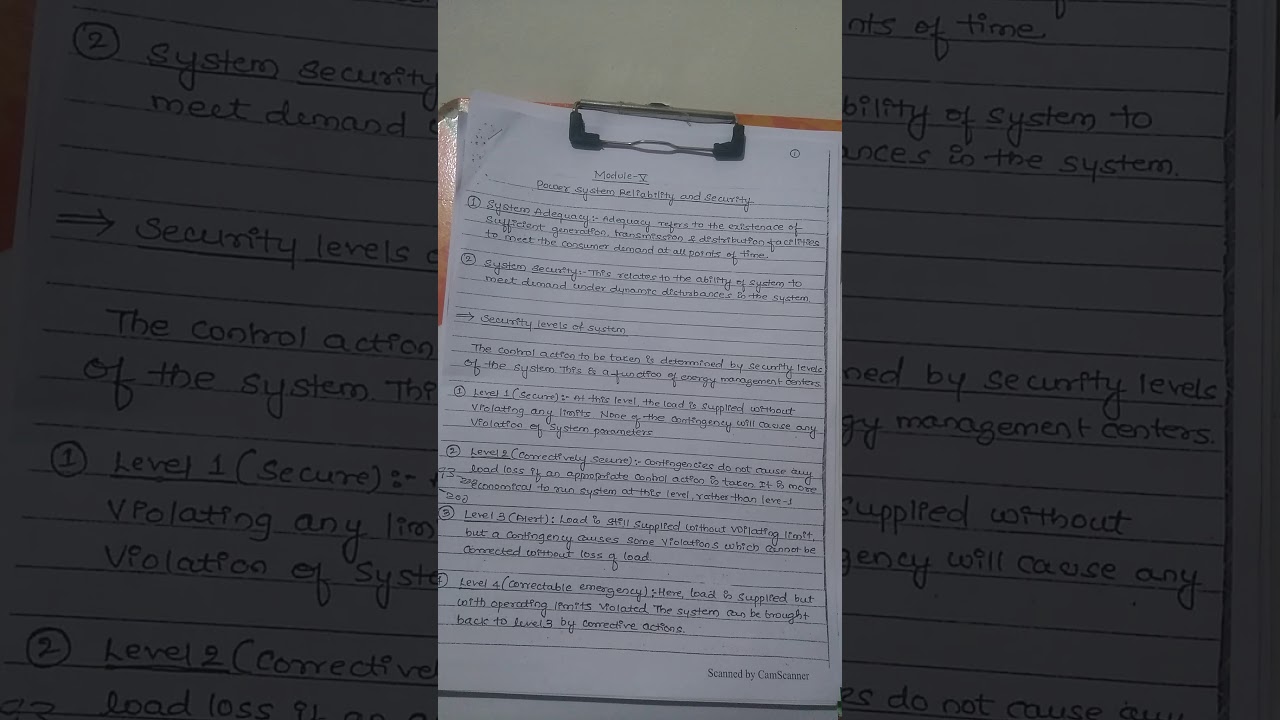 ①
Module-V
Power System Reliability and Security
① System Adequacy:- Adequacy refers to the existenace of
sufficient generation, transmission & distribution facilities
to meet the consumer demand at all points of time.
② System security:- This relates to the ability of system to
meet demand under dynamic disturbances in the system
⇒ Security levels of system
The control action to be taken is determined by security levels
of the system This is a function of energy management centers.
① Level 1 (Secure):- At this level, the load is supplied without
violating any limits None of the contingency will cause any
violation of system parameters
② Level 2 (Correctively secure):- Contingencies do not cause any
load loss if an appropriate control action is taken It is more
economical to run system at this level, rather than leve-1
③ Level 3 (Alert): Load is still supplied without voilating limit.
but a contingency causes some violations which cannot be
corrected without loss of load
Level 4 (correctable emergency):- Here, load is supplied but
with operating limits violated The system can be brought
back to level 3 by corrective actions.
Scanned by CamScanner
② System security
meet demand
⇒ Security levels
The control action
of the system
① Level 1 (Secure):-
violating any
violation of
② Level 2
load loss if
of time
of system to
in the system.
by security levels
management centers.
supplied without
will cause any
do not cause any